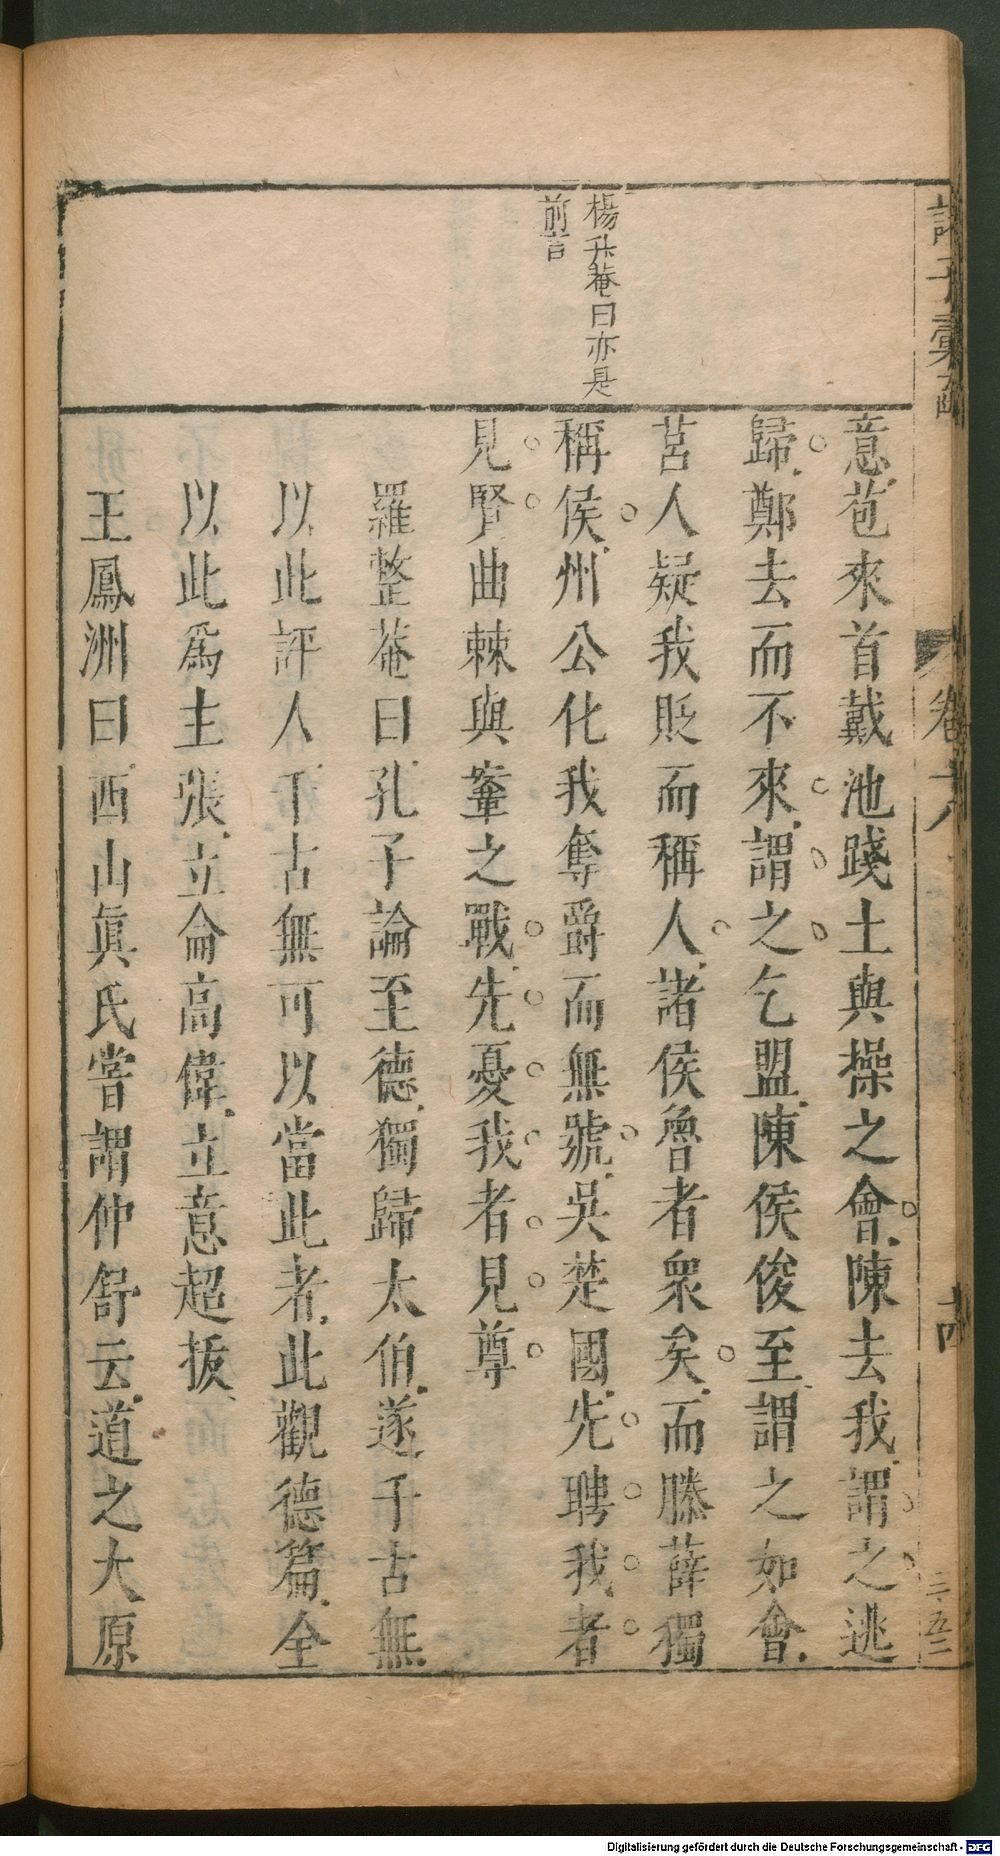 諸子彙函
卷十八
十四
三五二
楊升菴曰亦是
前旨
意苞來首戴池踐土與操之會陳去我謂之逃
歸鄭去而不來謂之乞盟陳侯俊至謂之如會
莒人疑我貶而稱人諸侯魯者衆矣而滕薛獨
稱侯州公化我奪爵而無號吳楚國先聘我者
見賢曲棘與鞌之戰先憂我者見尊
羅整菴曰孔子論至德獨歸太伯遂千古無
以此評人千古無可以當此者此觀德篇全
以此爲主張立侖高偉立意超拔
王鳳洲曰西山眞氏嘗謂仲舒云道之大原
Digitalisierung gefördert durch die Deutsche Forschungsgemeinschaft - DFG